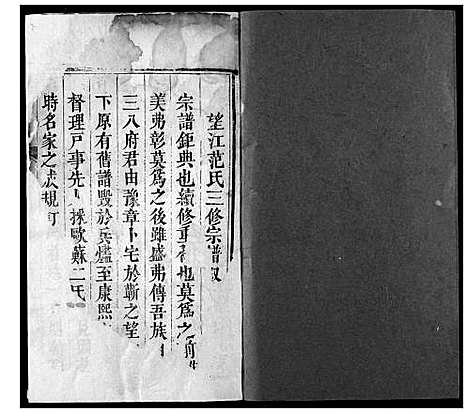 望江范氏三修宗譜叙
宗譜鉅典也續修重者也莫爲之前
美弗彰莫爲之後雖盛弗傳吾族
三八府君由豫章卜宅於蘄之望
下原有舊譜毀於兵燹至康熙
督理戸事先人採歐蘇二氏
時名家之成規訂